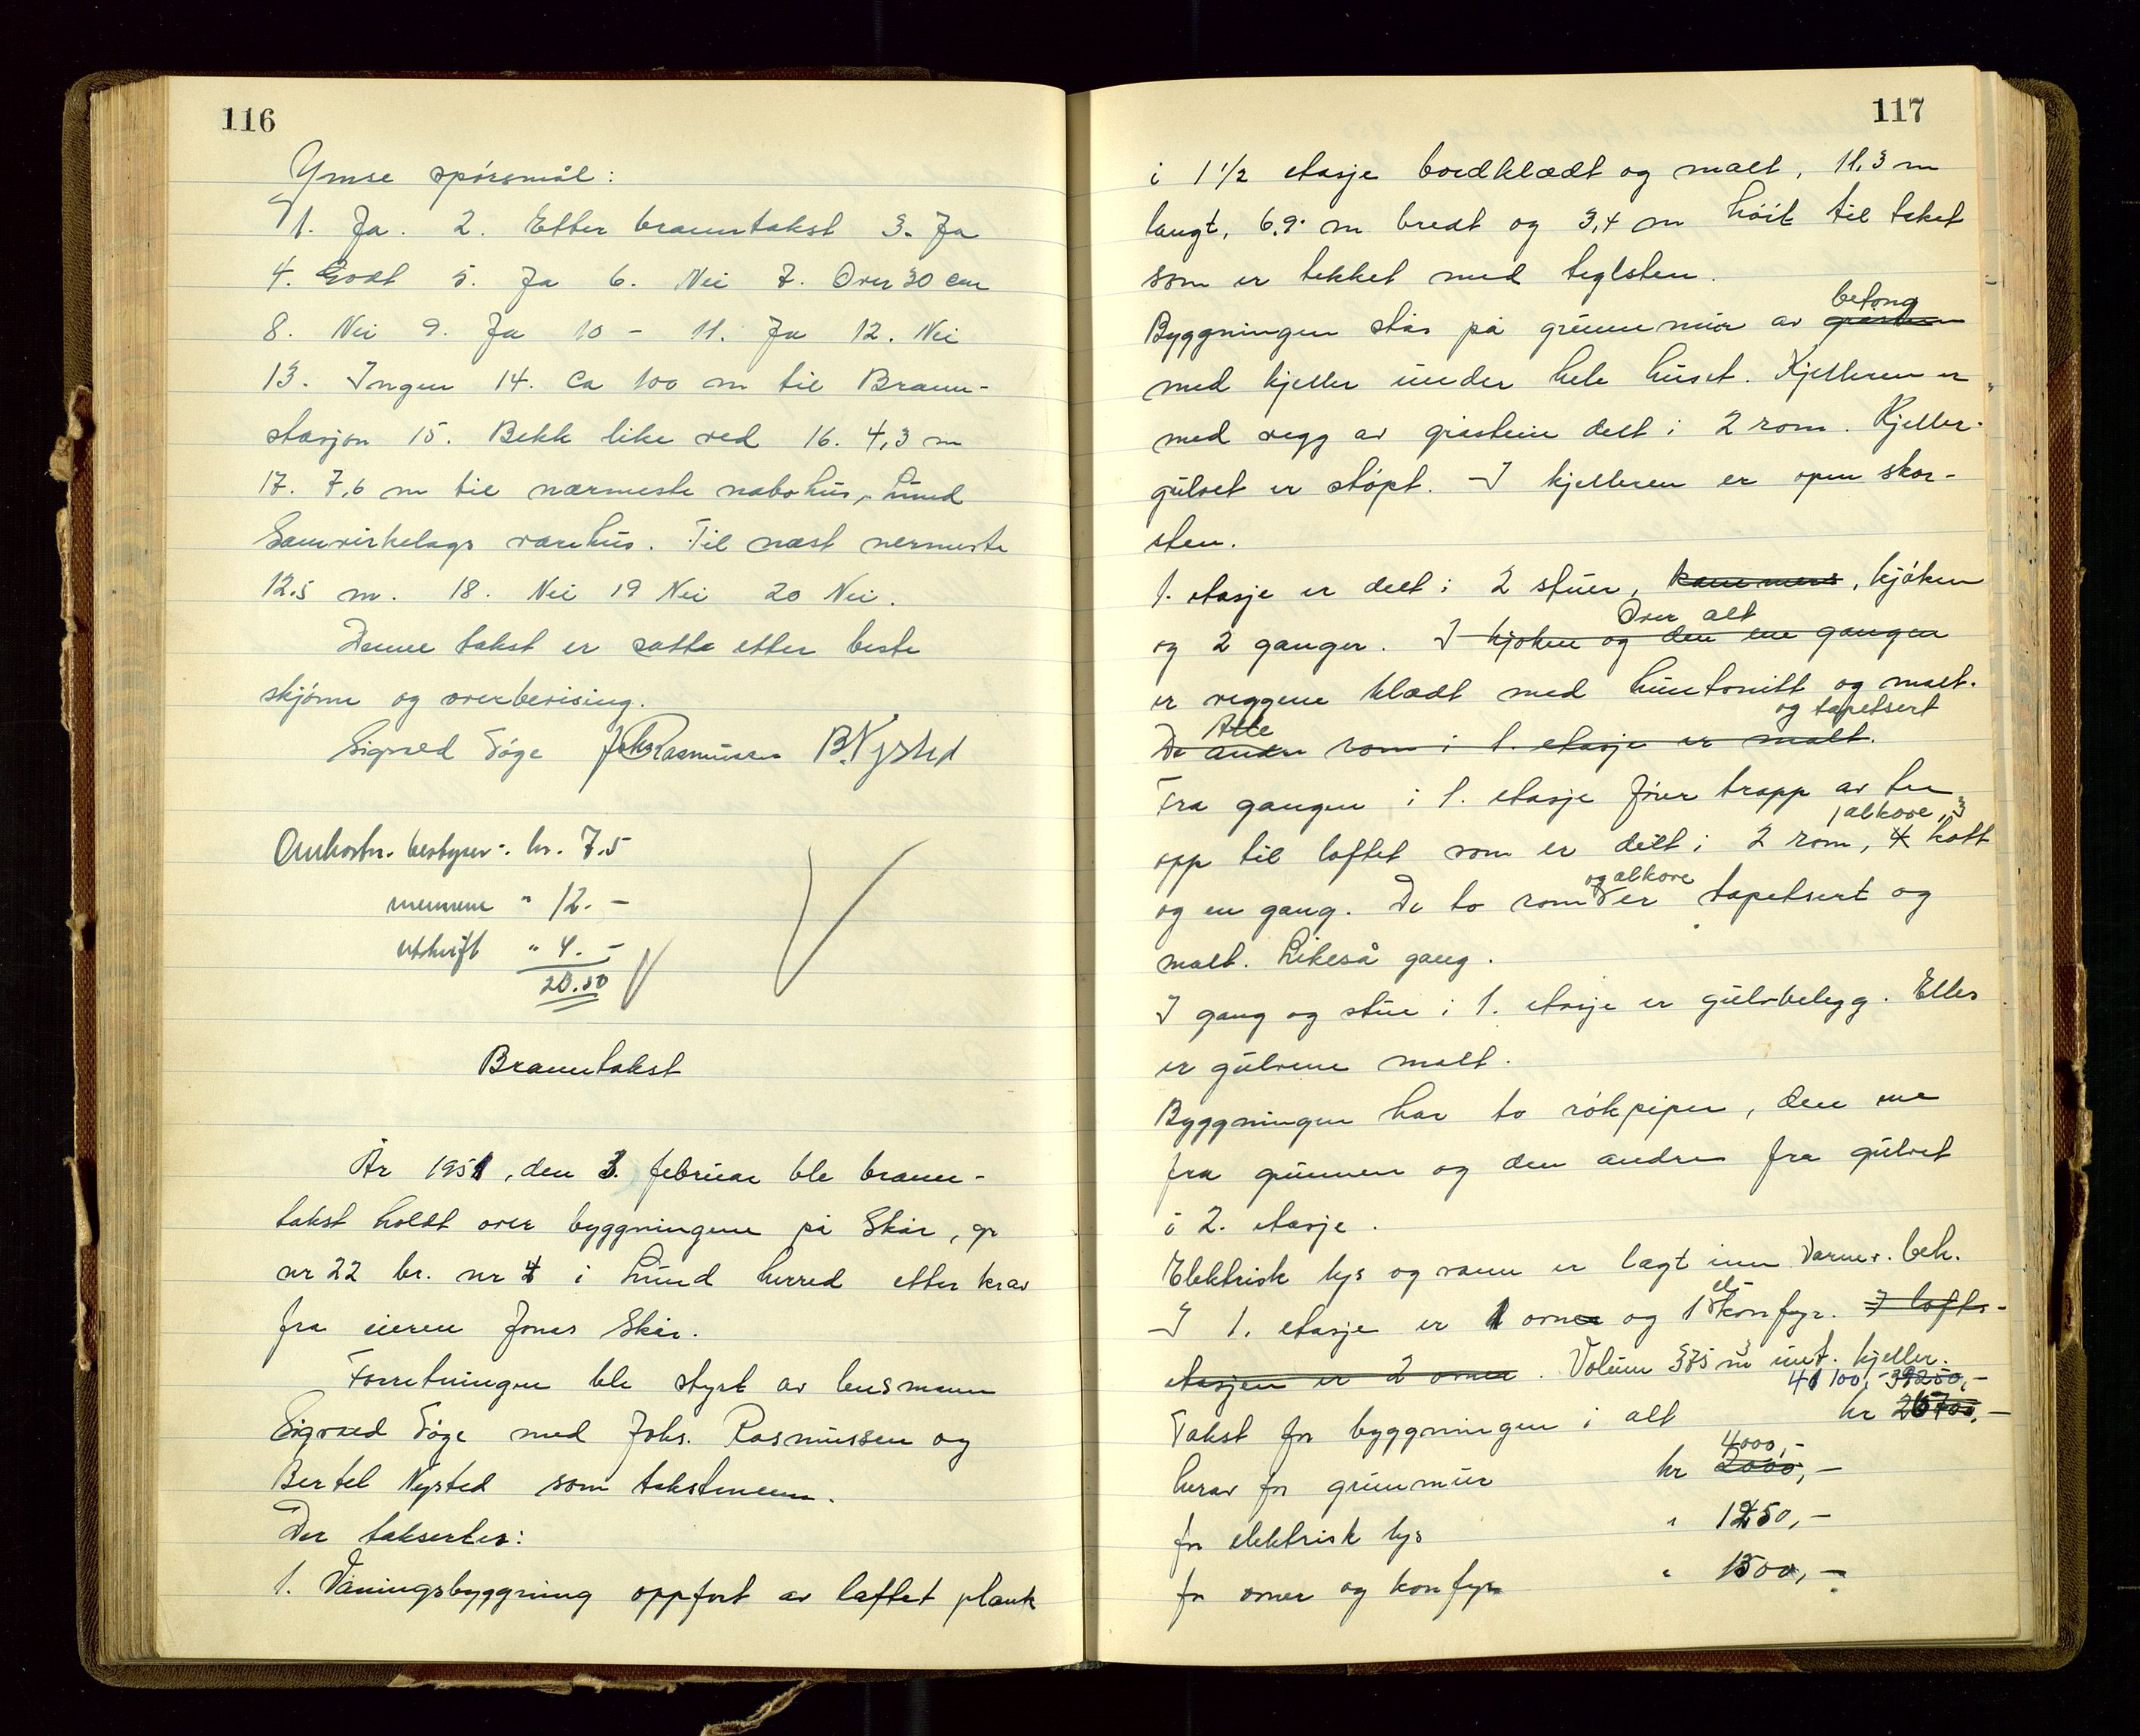 116
Ymse spørsmål:
1. Ja. 2. Etter branntakst 3. Ja
4. Godt 5. Ja 6. Nei 7. Over 30 cm
8. Nei 9. Ja 10 - 11. Ja 12. Nei
13. Ingen 14. Ca 100 m til Brann-
stasjon 15. Bekk like ved 16. 4,3 m
17. 7,6 m til nærmeste nabohus, Lund
Samvirkelags varehus. Til næst nermeste
12.5 m. 18. Nei 19 Nei 20 Nei.
Denne takst er satta etter beste
skjønn og overbevising.
Sigvald Tøge Johs Rasmussen B. Nysted
Omkostn. bestyrer: kr. 7.5
mennene " 12.-
utskrift " 4.-
Branntakst
År 1951, den 3. februar ble brann-
takst holdt over byggningene på Skår, gr
nr 22 br. nr 4 i Lund herred etter krav
fra eieren Jonas Skår.
Forretningen ble styrt av lensmann
Sigvald Tøge med Johs. Rasmussen og
Bertel Nysted som takstmenn.
Der taksertes:
1. Våningsbyggning oppfort av laftet plank
117
i 1 1/2 etasje bordklædt og malt, 11,3 m
langt, 6,9 m bredt og 3,4 m høit til taket
som er tekket med teglsten.
betong
Byggningen står på grunnmur av gråsten
med kjeller under hele huset. Kjelleren er
med vegg av gråstein delt i 2 rom. Kjeller-
gulvet er støpt. I kjelleren er open skor-
sten.
1. etasje er delt i 2 stuer, kammers, kjøken
Over alt
og 2 ganger. I kjøken og den ene gangen
er veggene klædt med huntonitt og malt.
Alle og tapetsert
De andre rom i 1. etasje er malt.
Fra gangen i 1. etasje fører trapp av tre
1 alkove, 3
opp til loftet som er delt i 2 rom, 4 kott
og alkove
og en gang. De to rom er tapetsert og
malt. Likeså gang.
I gang og stue i 1. etasje er gulvbelegg. Elles
er gulvene malt.
Byggningen har to røkpiper, den ene
fra grunnen og den andre fra gulvet
i 2. etasje.
Elektrisk lys og vann er lagt inn. Varmv. beh.
el-
I 1. etasje er 1 ovner og 1 komfyr. I lofts-
etasjen er 2 ovner. Volum 375 m3 unt. kjeller.
41100,- 39250,-
Takst for byggningen i alt kr 26700,-
4000,-
herav for grunnmur kr 2000,-
for elektrisk lys " 1250,-
for ovner og komfyr " 1500,-